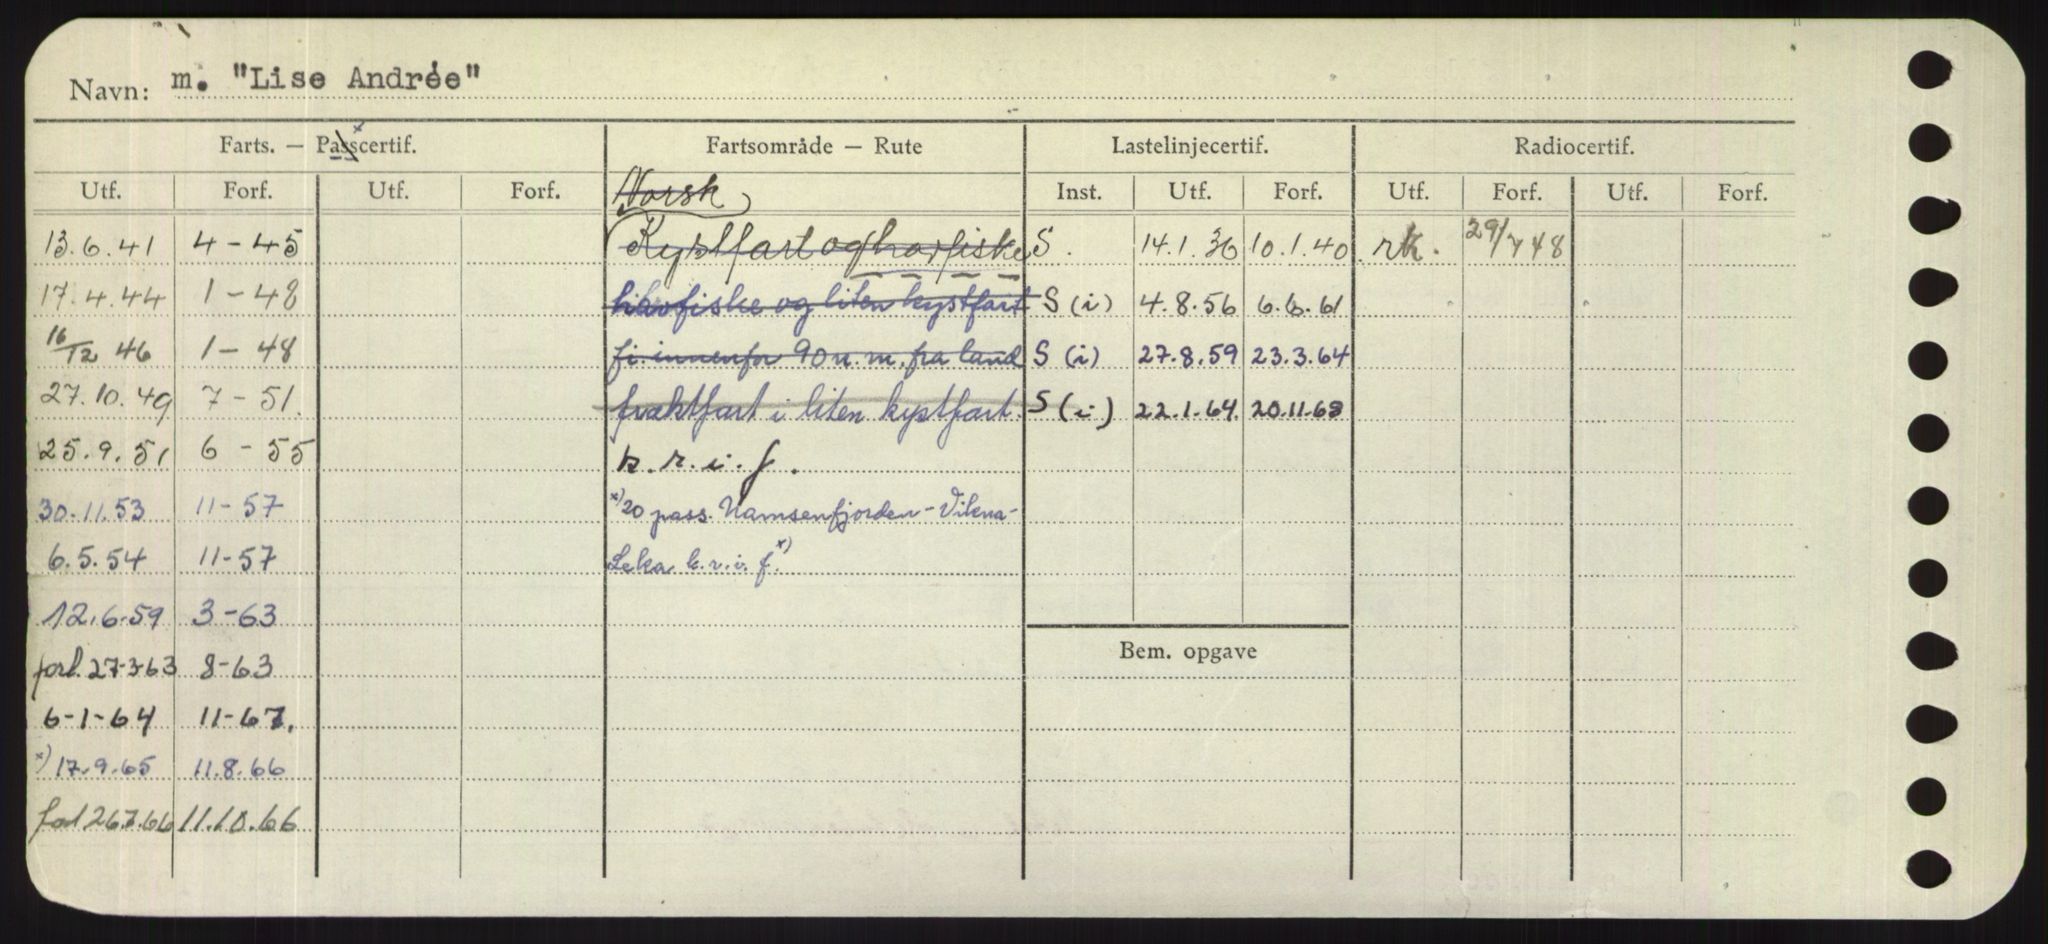 Navn: m. "Lise Andrée"
Farts. — Passcertif. Fartsområde — Rute Lastelinjecertif. Radiocertif.
Utf. Forf. Utf. Forf. Norsk Inst. Utf. Forf. Utf. Forf. Utf. Forf.
13.6.41 4-45 Kystfart og havfiske S. 14.1.36 10.1.40 rk. 29/7 48
17.4.44 1-48 havfiske og liten kystfart S (i) 4.8.56 6.6.61
16/12 46 1-48 fi. innenfor 90 n.m. fra land S (i) 27.8.59 23.3.64
27.10.49 7-51. fraktfart i liten kystfart. S (i) 22.1.64. 20.11.68
25.9.51 6-55 k.r.i.f.
30.11.53 11-57 *) 20 pass. Namsenfjorden-Vikna-
6.5.54 11-57 Leka k.r.i.f. *)
12.6.59 3-63
forl. 27-3-63 8-63 Bem. opgave
6-1-64 11-67.
*) 17.9.65 11.8.66
forl 26.7.66 11.10.66